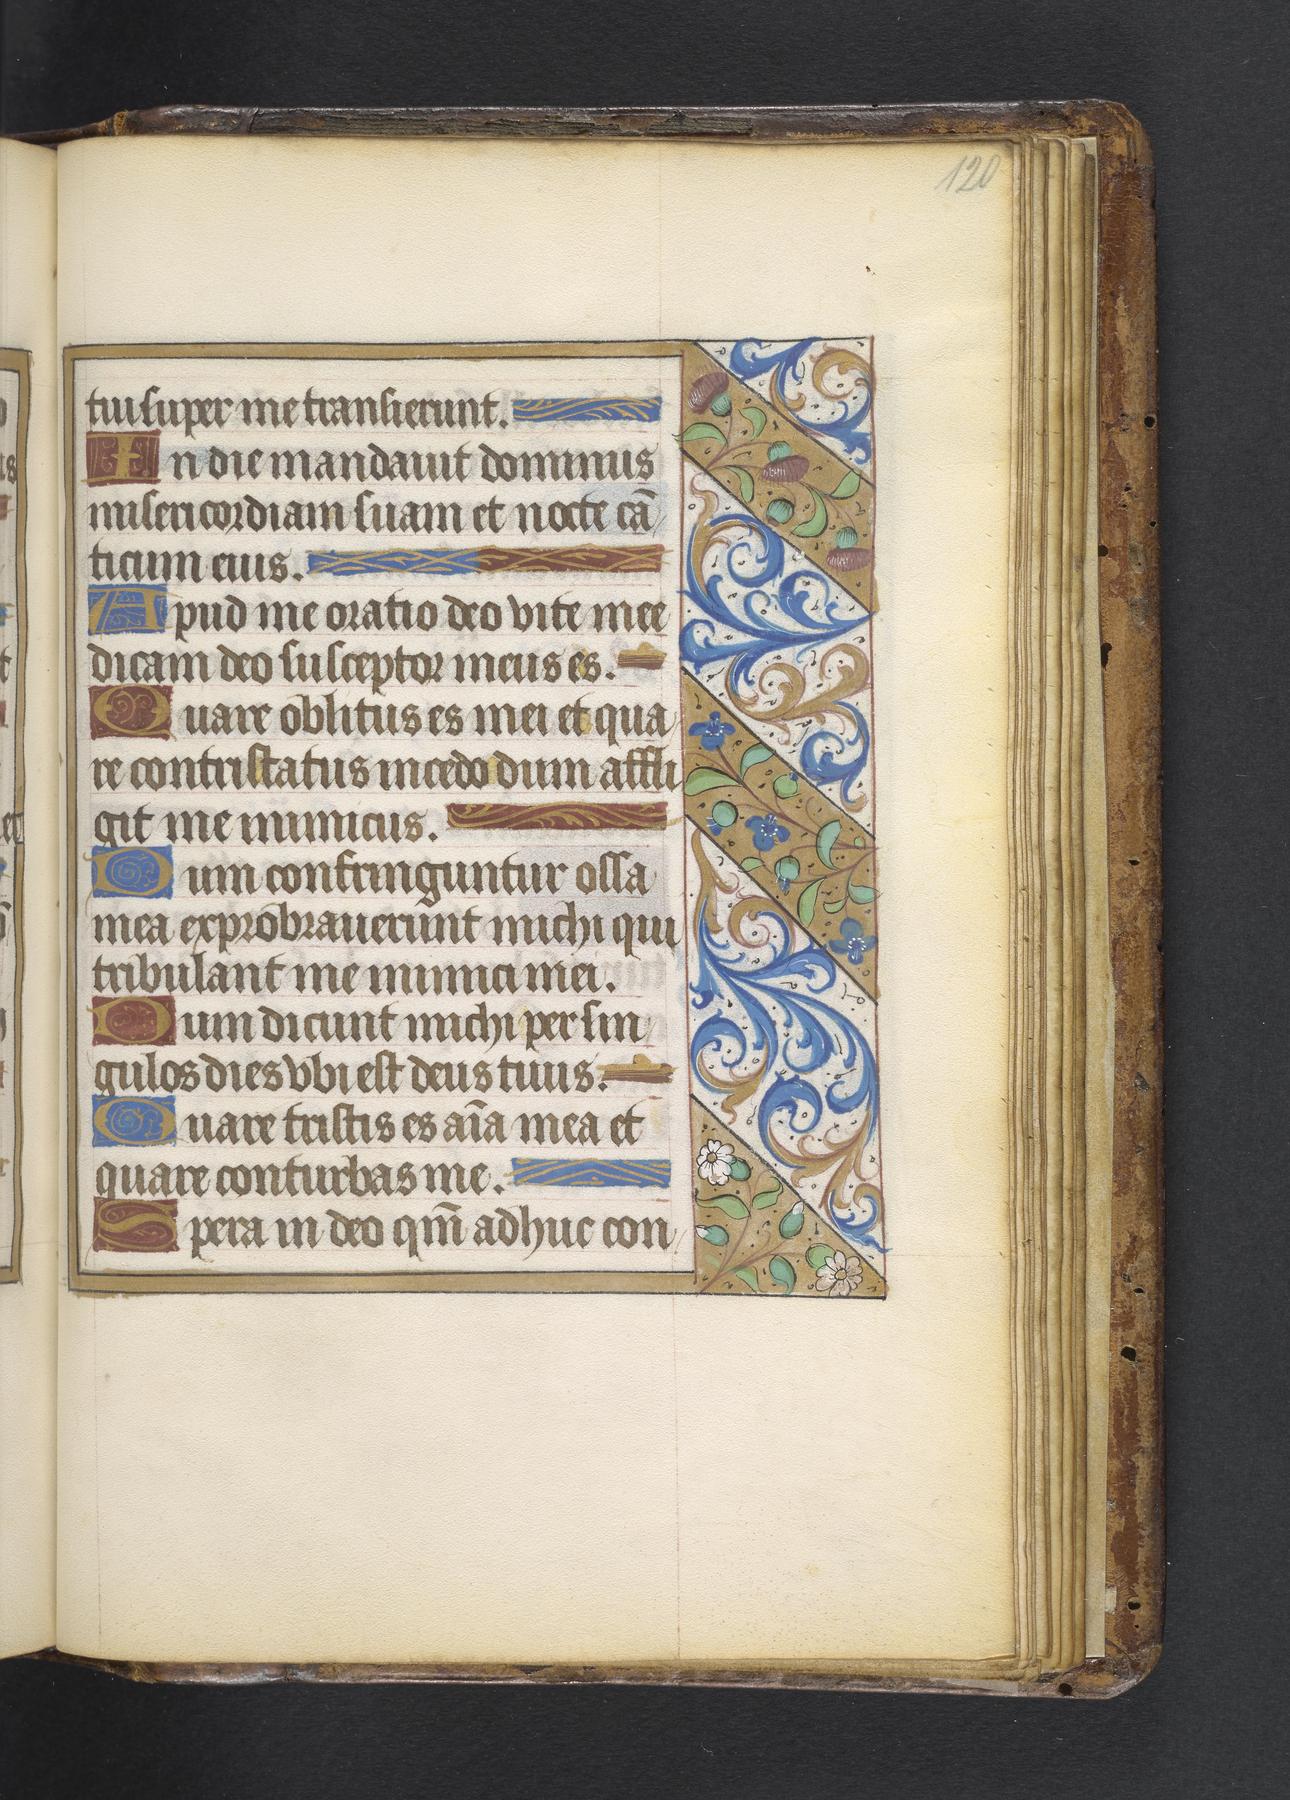 120
tui super me transierunt.
In die mandauit dominus
misericordiam suam et nocte cā
ticum eius.
Apud me oratio deo vite mee
dicam deo susceptor meus es.
Quare oblitus es mei et qua
re contristatus incedo dum affli
git me inimicus.
Dum confringuntur ossa
mea exprobrauerunt michi qui
tribulant me inimici mei.
Dum dicunt michi per sin
gulos dies vbi est deus tuus.
Quare tristis es aīa mea et
quare conturbas me.
Spera in deo qm̄ adhuc con